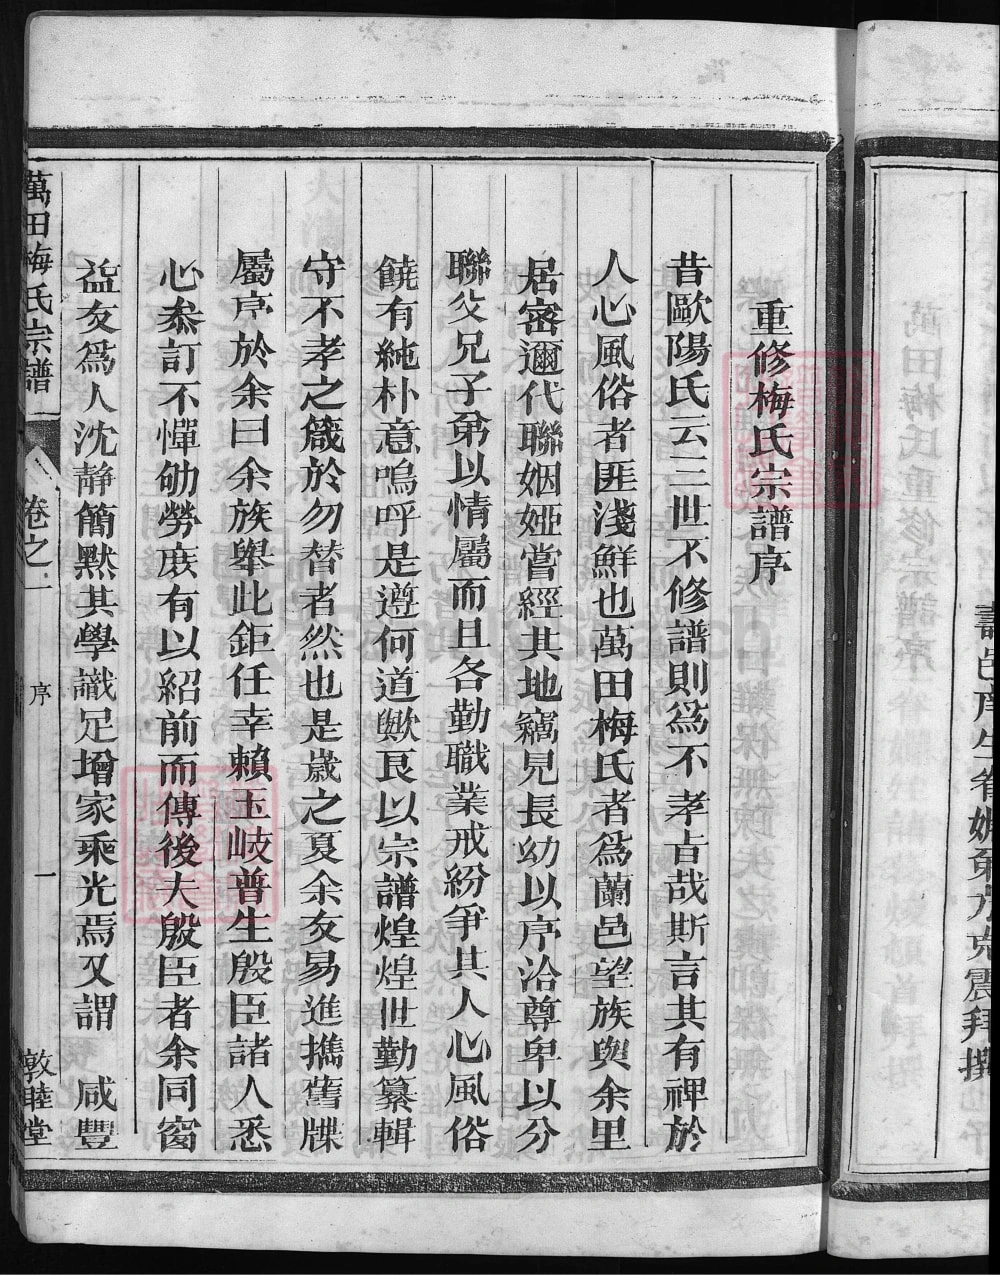 壽邑庠生眷姻弟方克震拜撰
重修梅氏宗譜序
昔歐陽氏云三世不修譜則爲不孝古哉斯言其有禆於
人心風俗者匪淺鮮也萬田梅氏者爲蘭邑望族與余里
居密邇代聯姻婭嘗經其地竊見長幼以序洽尊卑以分
聯父兄子弟以情屬而且各勤職業戒紛爭其人心風俗
饒有純朴意嗚呼是遵何道歟良以宗譜煌煌世勤纂輯
守不孝之箴於勿替者然也是歲之夏余友易進擕舊牒
屬序於余曰余族舉此鉅任幸賴玉岐普生殷臣諸人悉
心叅訂不憚劬勞庶有以紹前而傳後夫殷臣者余同窗
益友爲人沈静簡默其學識足增家乘光焉又謂　咸豐
萬田梅氏宗譜
卷之一
序
一
敦睦堂